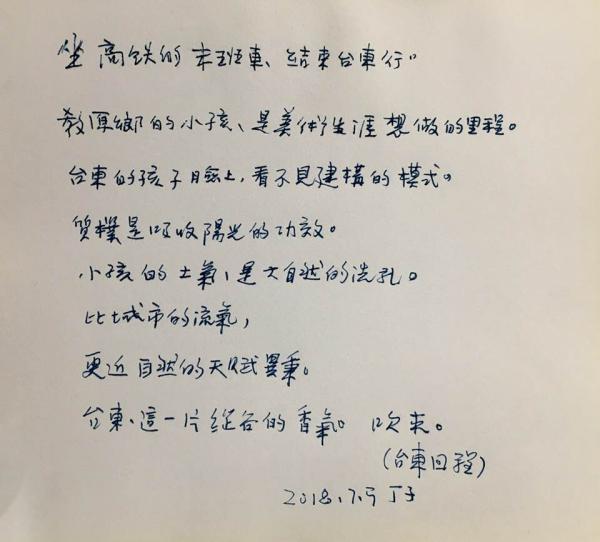 坐高鉄的末班車、結束台東行。
教原鄉的小孩、是美術生涯想做的里程。
台東的孩子臉上，看不見建構的模式。
質樸是吸收陽光的功效。
小孩的土氣、是大自然的洗礼。
比城市的流氣，
更近自然的天賦異秉。
台東、這一片縱谷的香氣。吹來。
(台東回程)
2018.7.5 丁子